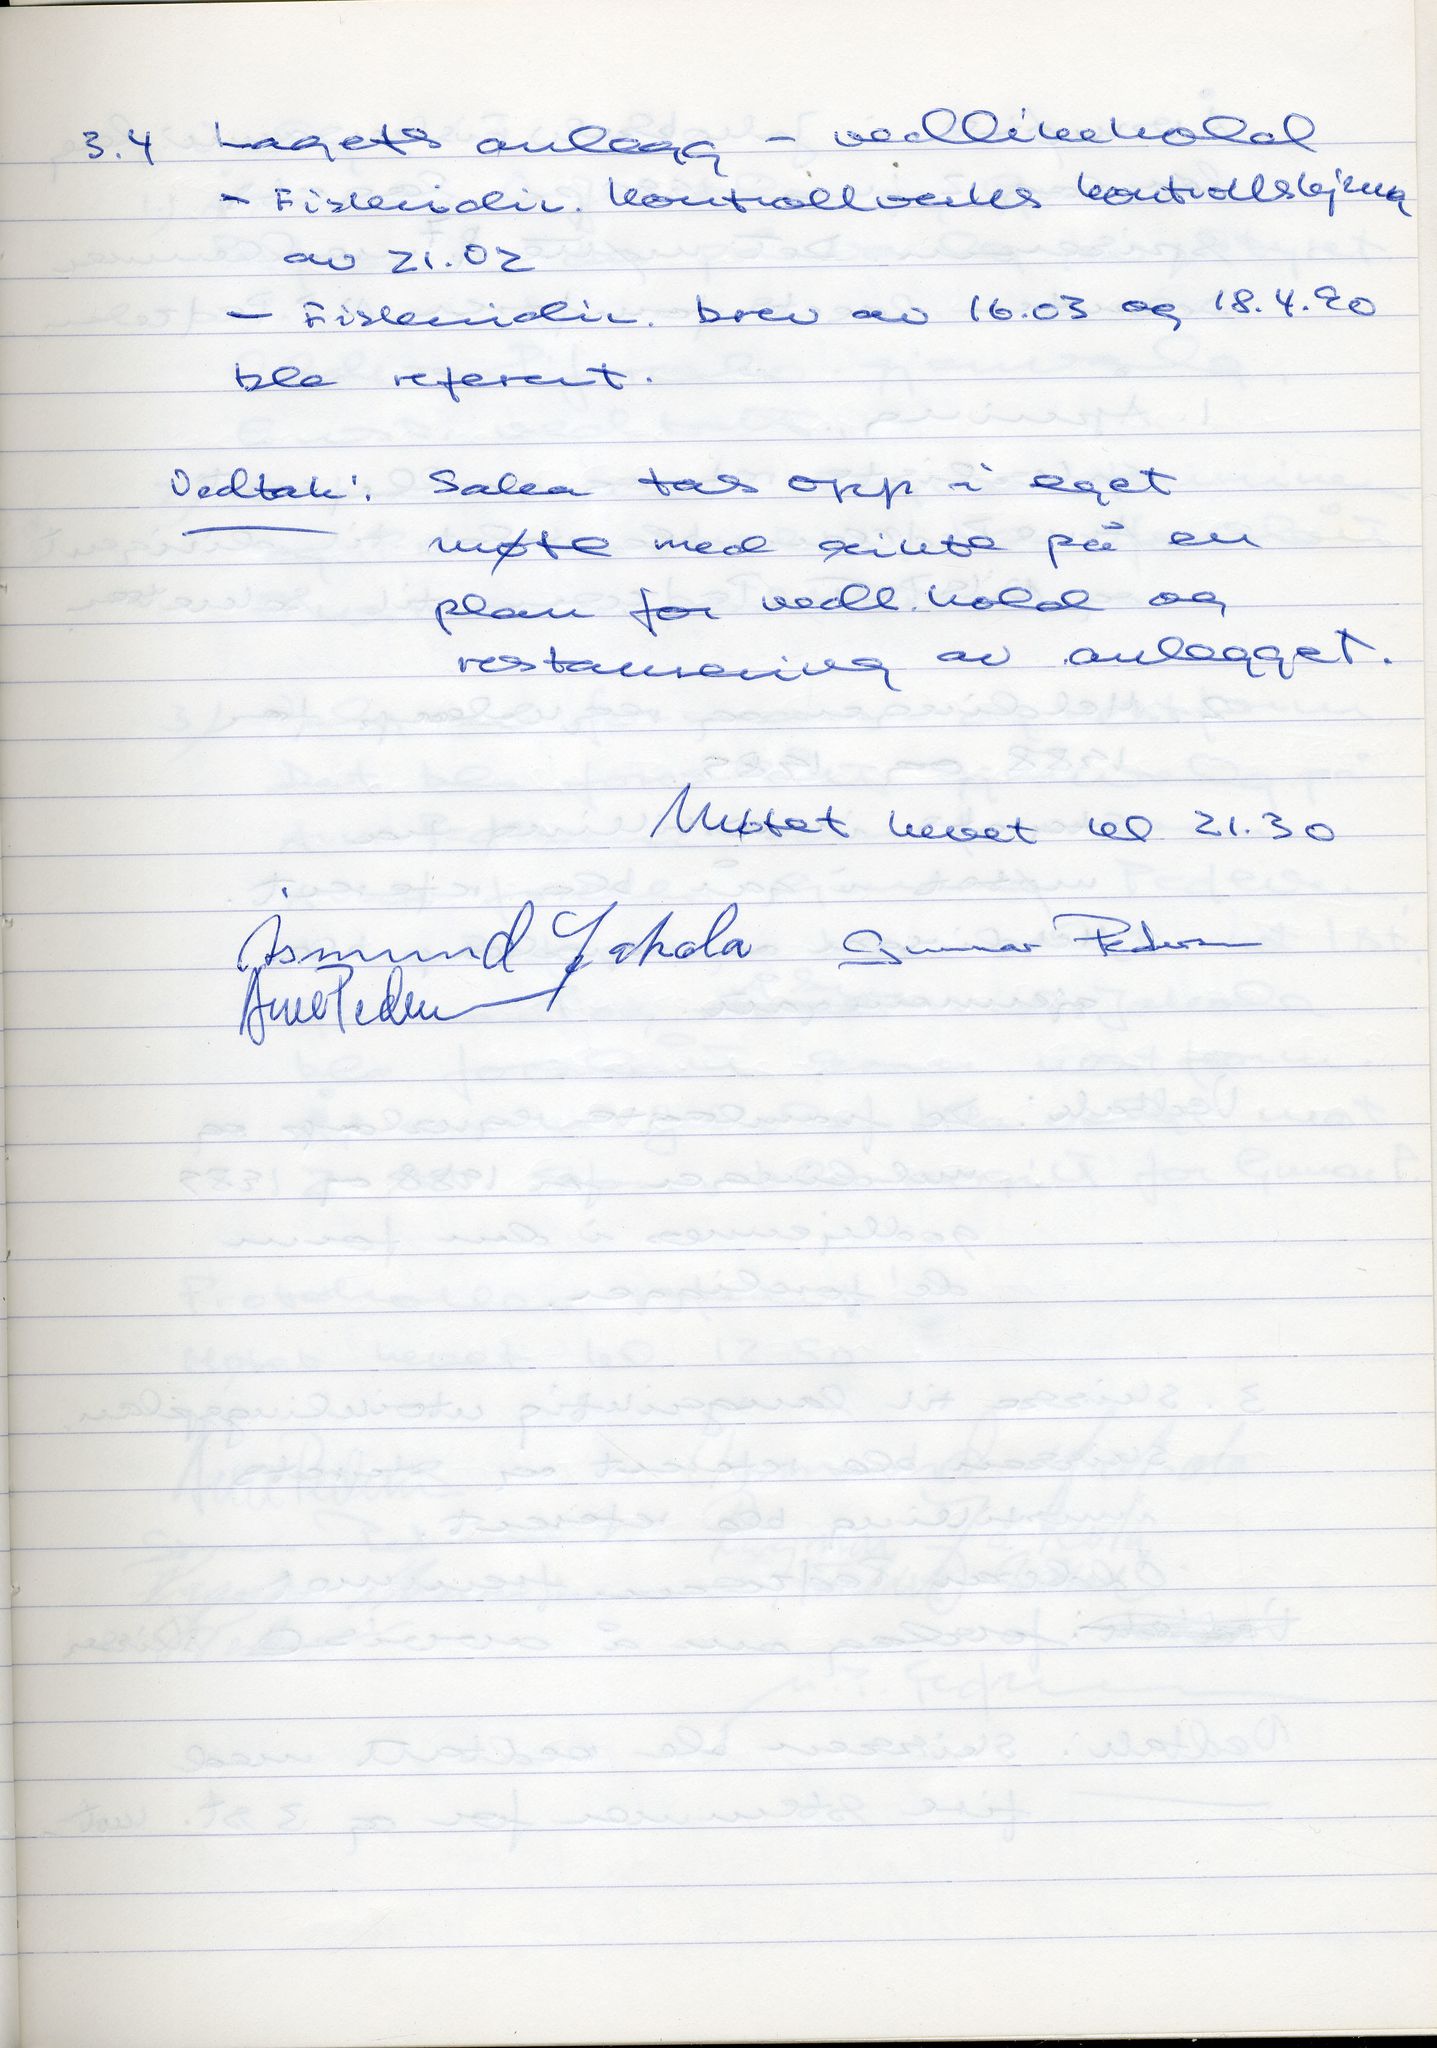 3.4 Lagets anlegg - vedlikehold
- Fiskeridir. kontrollverks kontrollskjema
av 21.02
- Fiskeridir. brev av 16.03 og 18.4.90
ble referert.
Vedtak: Saka tas opp i eget
møte med sikte på en
plan for vedl.hold og
restaurering av anlegget.
Møtet hevet kl 21.30
Åsmund Gunnar Pedersen
Arne Pedersen